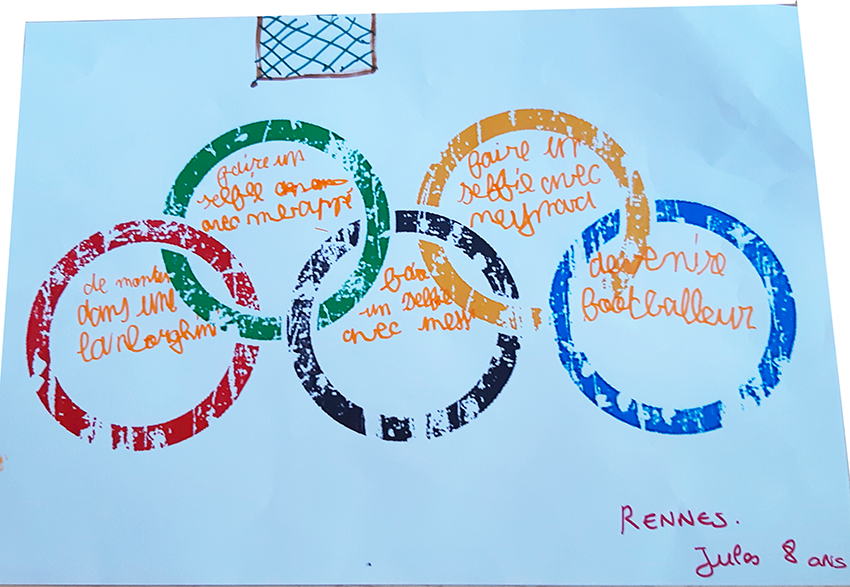 faire un
selfie
avec mbrappé
faire un
selfie avec
neymar
de monter
dans une
lanborghin
un selfie
avec mess
devenire
footballeur
RENNES.
Jules 8 ans